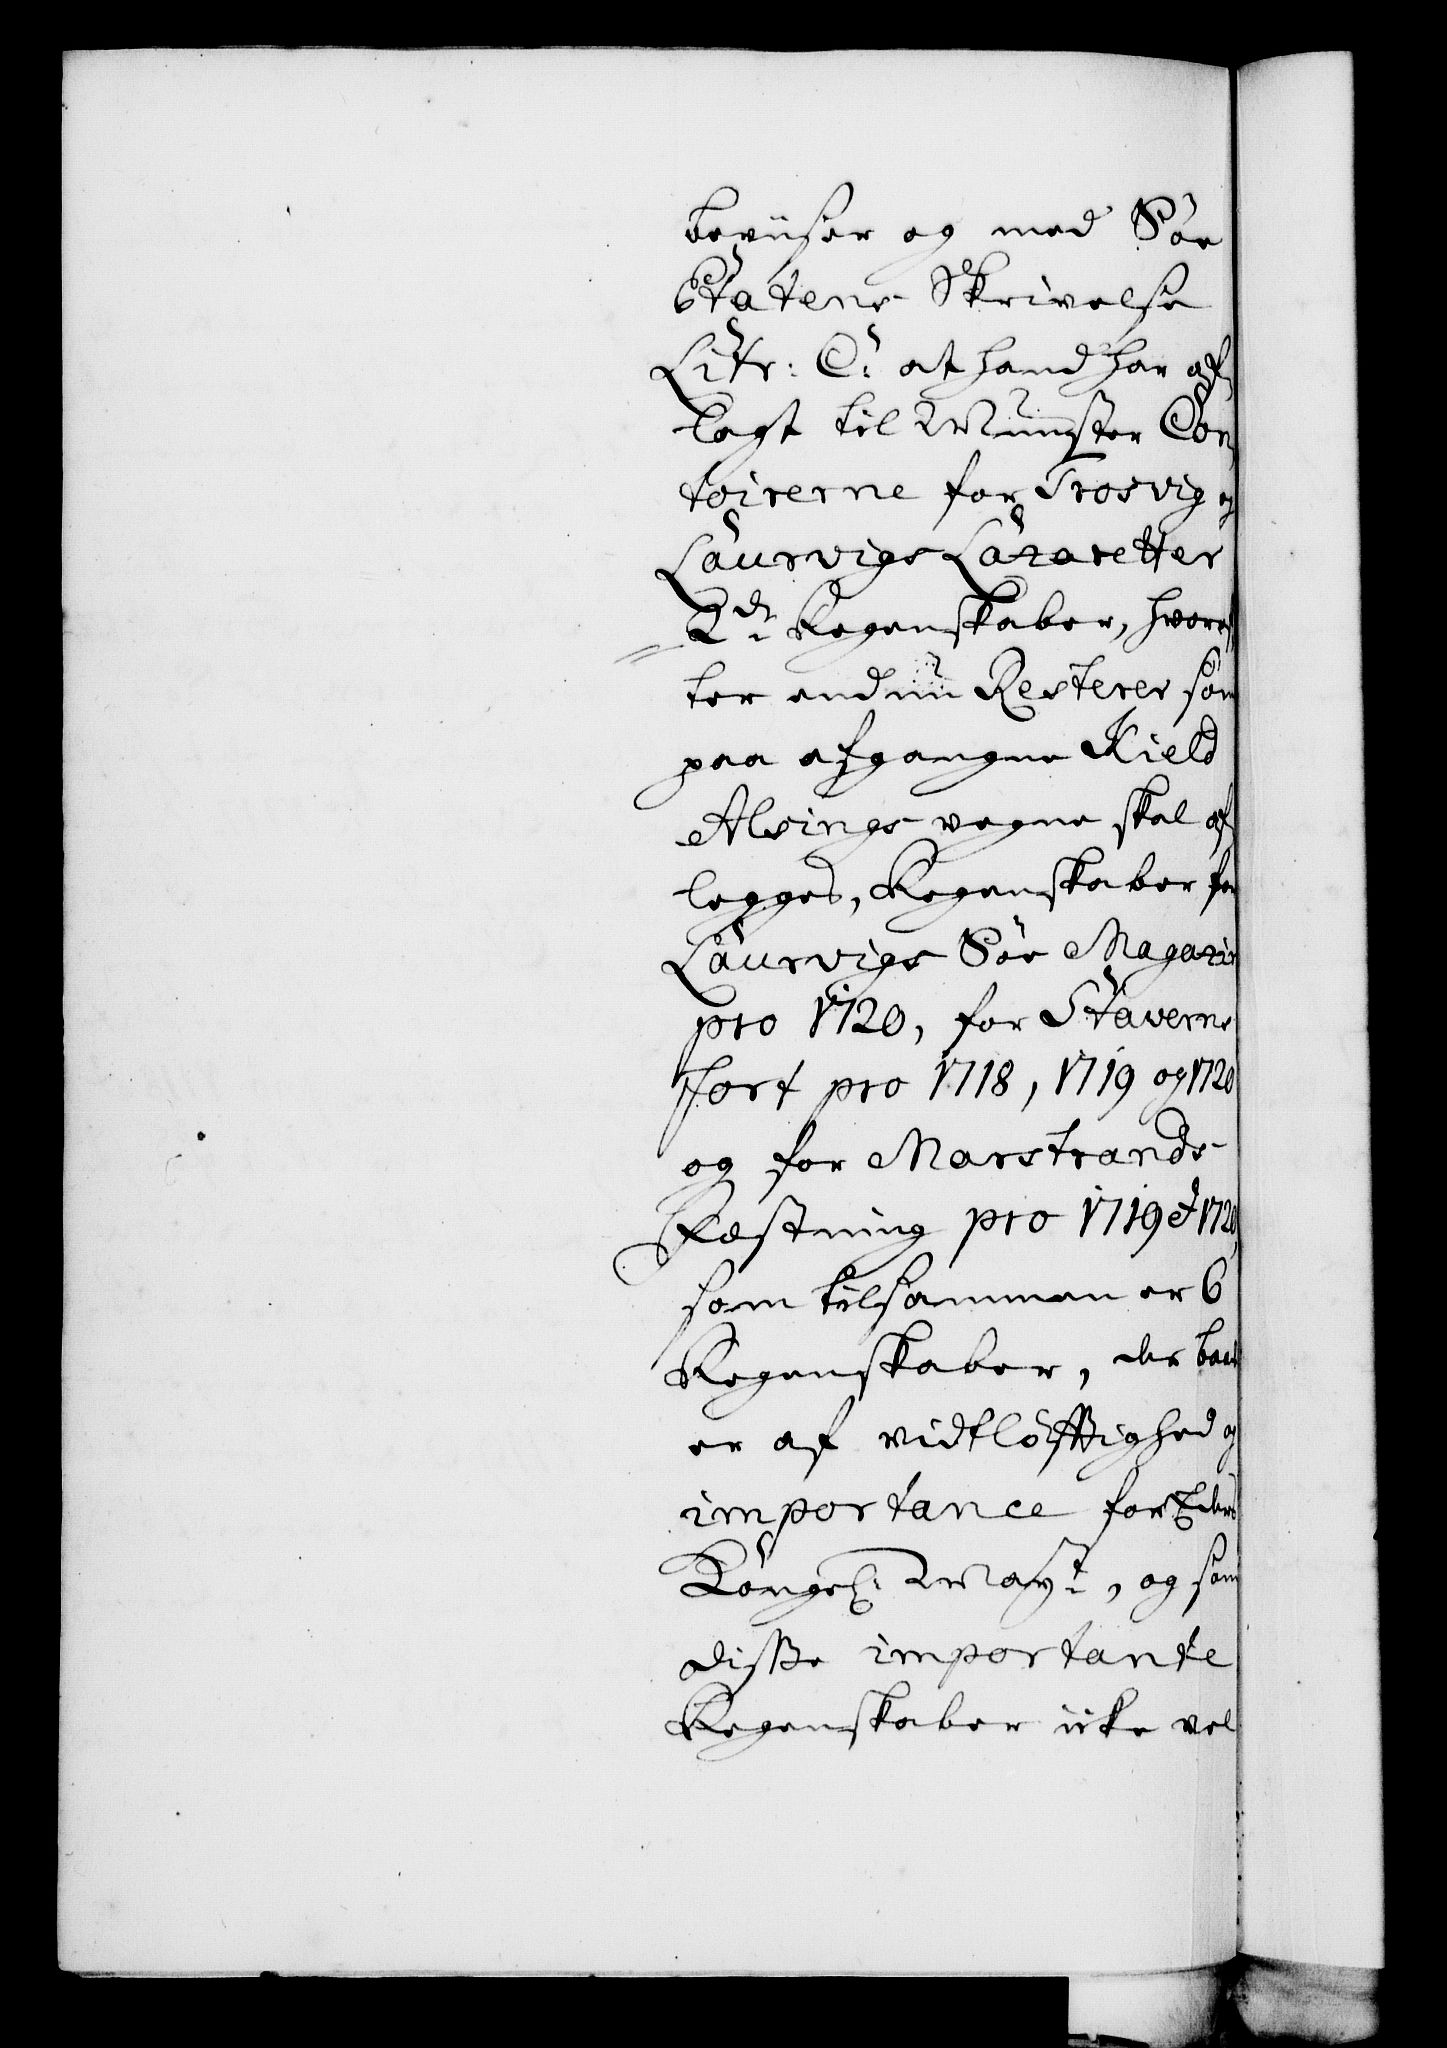 beviiser og med Söe
Etatens Skrivelse
Litr: C: at hand har af
lagt til Mynster Con
toirerne for Trosvig og
Laurvigs Lazaretter
2de Regenskaber, hvoref
ter endnu Resterer som
paa afgangne Kield
Alsings vegne skal af
legges, Regenskaber for
Laurvigs Söe Magazin
pro 1720, for Staverns
Fort pro 1718, 1719 og 1720
og for Marstrands
Festning pro 1719 et 1720,
som tilsammen er 6
Regenskaber, der baade
er af vidtlöfftighed og
importance for Eders
Kongel: Mayt:, og som
disse importante
Regenskaber icke vel